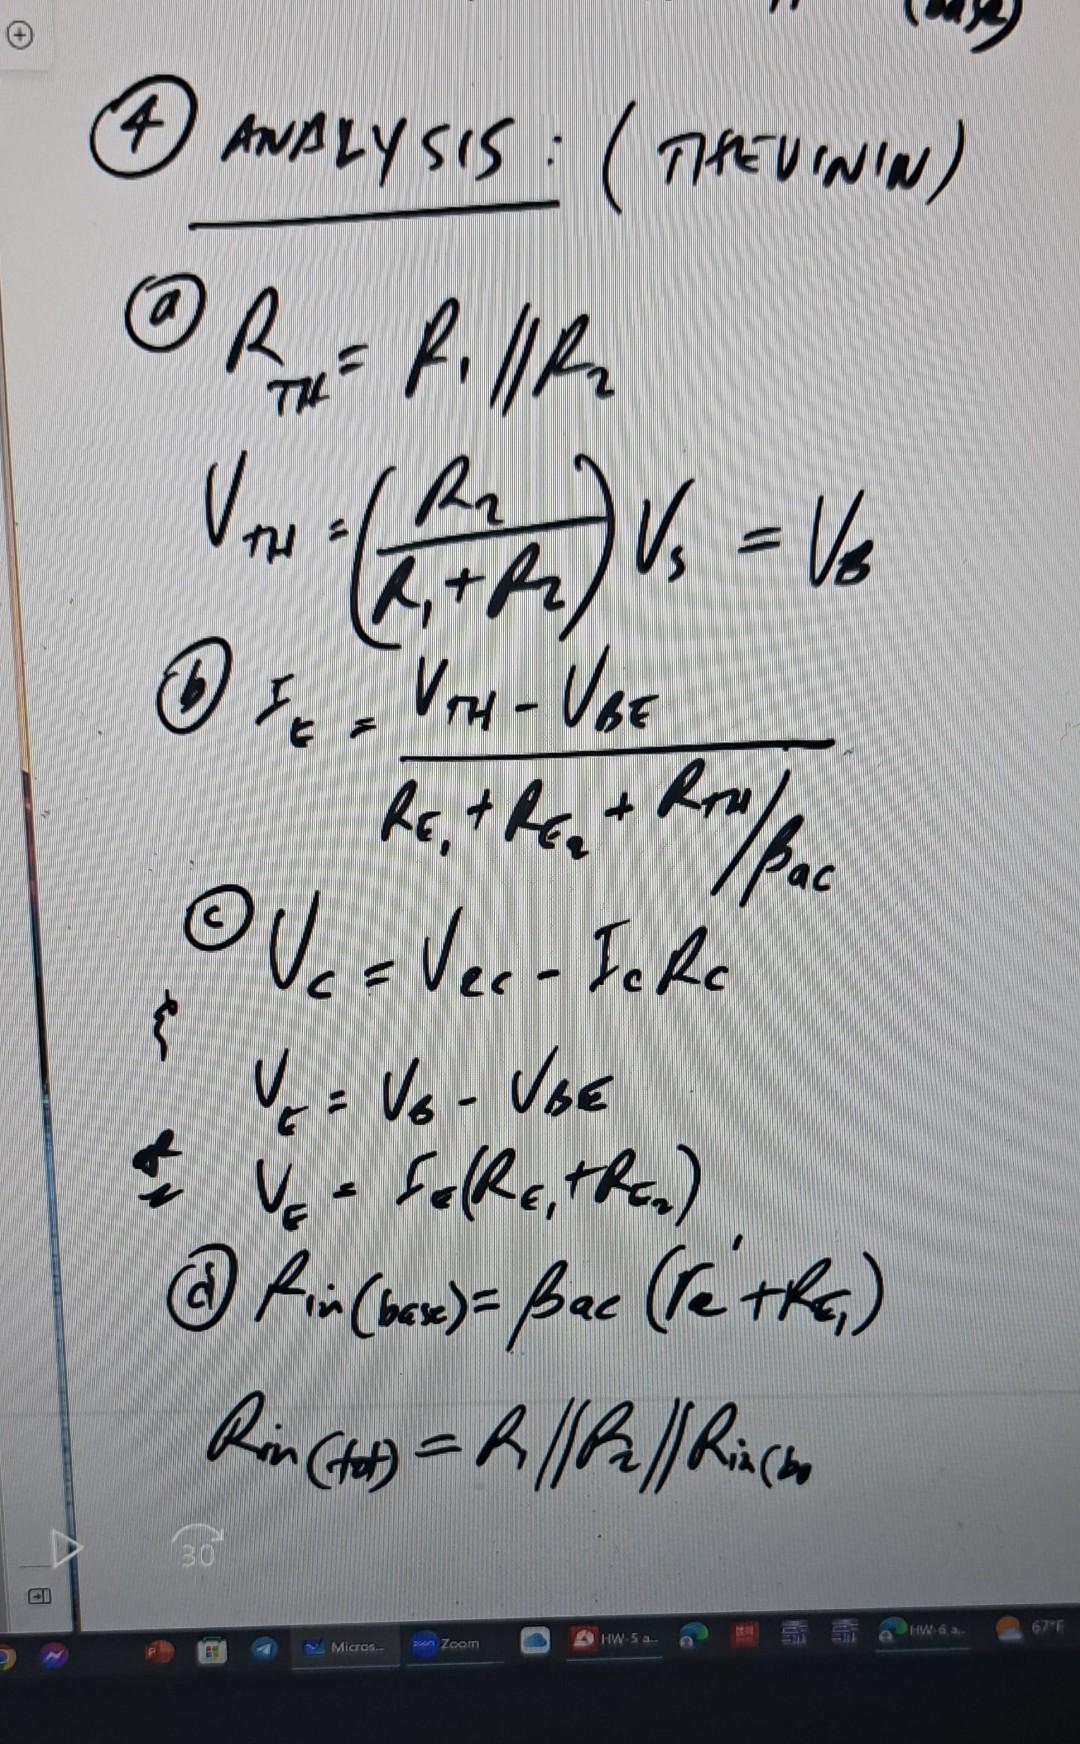 (base)
④ ANALYSIS : (THEVININ)
ⓐ R_TH = R₁ // R₂
V_TH = (R₂ / (R₁ + R₂)) V_S = V_B
ⓑ I_E = (V_TH - V_BE) / (R_E₁ + R_E₂ + R_TH / βac)
ⓒ V_C = V_CC - I_C R_C
V_E = V_B - V_BE
V_E = I_E (R_E₁ + R_E₂)
ⓓ Rin(base) = βac (re' + R_E₁)
Rin(tot) = R₁ // R₂ // Rin(ba
30
Micros... Zoom HW-5 a... HW-6 a... 67°F